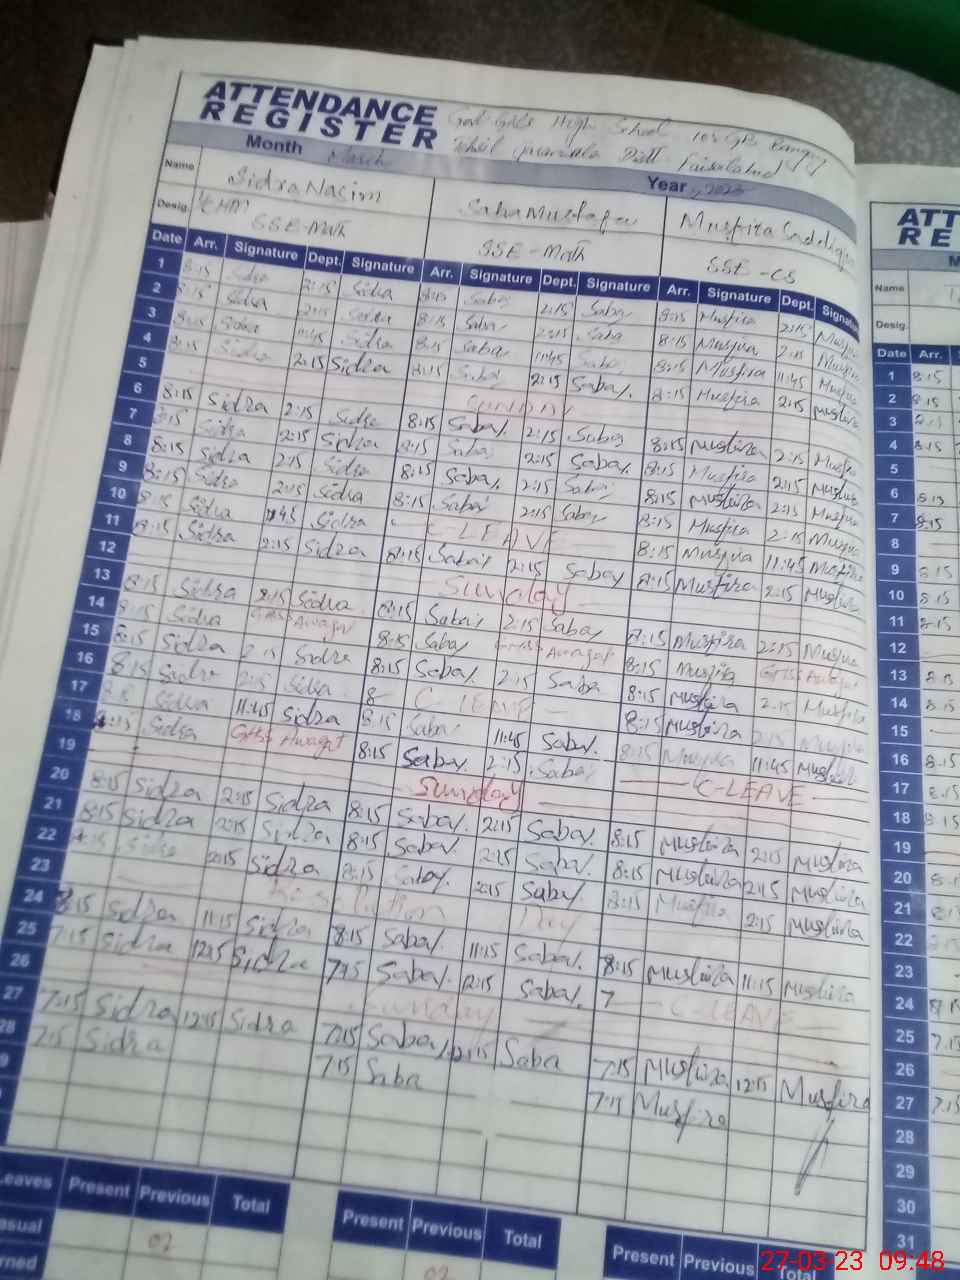 ATTENDANCE REGISTER
Govt Girls High School 105 GB
Month March Year 2023
Name Sidra Nasim Saba Mustafa Musfira
Desig. SSE-Math SSE-Math SSE-CS
Date Arr. Signature Dept. Signature Arr. Signature Dept. Signature Arr. Signature Dept. Signature
1 8:15 Sidra 2:15 Sidra 8:15 Saba 2:15 Saba 8:15 Musfira 2:15 Musfira
2 8:15 Sidra 2:15 Sidra 8:15 Saba 2:15 Saba 8:15 Musfira 2:15 Musfira
3 8:15 Sidra 11:45 Sidra 8:15 Saba 11:45 Saba 8:15 Musfira 11:45 Musfira
4 8:15 Sidra 2:15 Sidra 8:15 Saba 2:15 Saba 8:15 Musfira 2:15 Musfira
5 Sunday
6 8:15 Sidra 2:15 Sidra 8:15 Saba 2:15 Saba 8:15 Musfira 2:15 Musfira
7 8:15 Sidra 2:15 Sidra 8:15 Saba 2:15 Saba 8:15 Musfira 2:15 Musfira
8 8:15 Sidra 2:15 Sidra 8:15 Saba 2:15 Saba 8:15 Musfira 2:15 Musfira
9 8:15 Sidra 2:15 Sidra 8:15 Saba 2:15 Saba 8:15 Musfira 2:15 Musfira
10 8:15 Sidra 11:45 Sidra C-LEAVE 8:15 Musfira 11:45 Musfira
11 8:15 Sidra 2:15 Sidra 8:15 Saba 2:15 Saba 8:15 Musfira 2:15 Musfira
12 Sunday
13 8:15 Sidra 8:15 Sidra 8:15 Saba 2:15 Saba 8:15 Musfira 2:15 Musfira
14 8:15 Sidra GHSS Awagat 8:15 Saba GHSS Awagat 8:15 Musfira GHSS Awagat
15 8:15 Sidra 2:15 Sidra 8:15 Saba 2:15 Saba 8:15 Musfira 2:15 Musfira
16 8:15 Sidra 2:15 Sidra C LEAVE 8:15 Musfira 2:15 Musfira
17 8:15 Sidra 11:45 Sidra 8:15 Saba 11:45 Saba 8:15 Musfira 11:45 Musfira
18 8:15 Sidra GHSS Awagat 8:15 Saba 2:15 Saba C-LEAVE
19 Sunday
20 8:15 Sidra 2:15 Sidra 8:15 Saba 2:15 Saba 8:15 Musfira 2:15 Musfira
21 8:15 Sidra 2:15 Sidra 8:15 Saba 2:15 Saba 8:15 Musfira 2:15 Musfira
22 8:15 Sidra 2:15 Sidra 8:15 Saba 2:15 Saba 8:15 Musfira 2:15 Musfira
23 Day
24 8:15 Sidra 11:15 Sidra 8:15 Saba 11:15 Saba 8:15 Musfira 11:15 Musfira
25 7:15 Sidra 12:15 Sidra 7:15 Saba 12:15 Saba 7 C-LEAVE
26 Sunday
27 7:15 Sidra 12:15 Sidra 7:15 Saba 12:15 Saba 7:15 Musfira 12:15 Musfira
28 7:15 Sidra 7:15 Saba 7:15 Musfira
Leaves Present Previous Total Present Previous Total Present Previous Total
02
02
Name
Desig.
Date Arr.
1 8:15
2 8:15
3
4 8:15
5
6 8:15
7 8:15
8
9 8:15
10 8:15
11 8:15
12
13 8:15
14 8:15
15
16 8.15
17 8.15
18 8.15
19
20
21
22
23
24
25 7.15
26
27 7.15
28
29
30
31
27-03-23 09:48